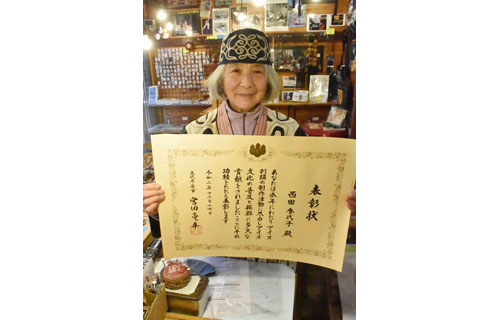 表彰状
西田 香代子 殿
あなたは永年にわたりアイヌ
刺繍の制作活動に尽力しアイヌ
文化の普及と振興に多大な
貢献をされましたここにその
功績をたたえ表彰します
令和二年十二月
文化庁長官 宮田亮平